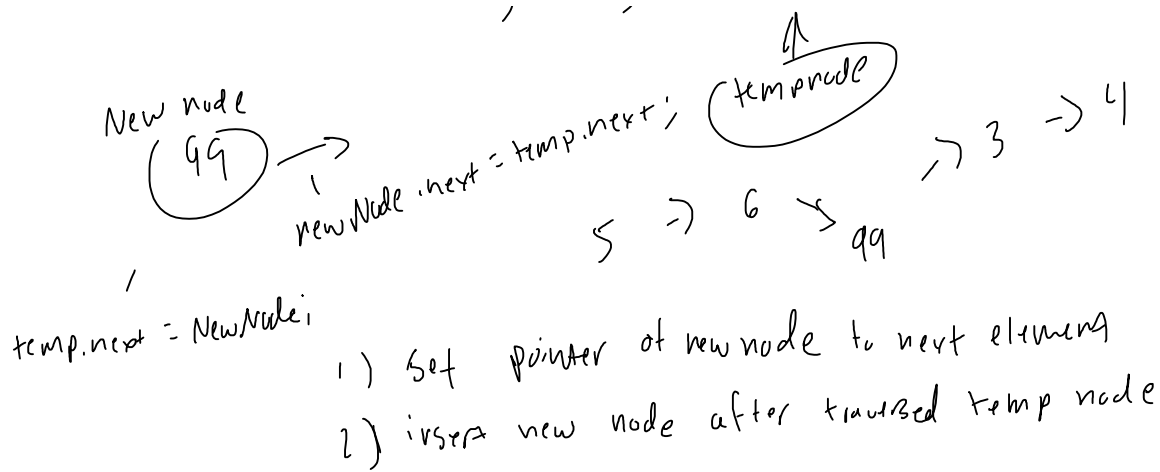 New node
99
newNode.next = temp.next;
tempnode
5 -> 6 -> 99 -> 3 -> 4
temp.next = NewNode;
1) Set pointer of new node to next element
2) insert new node after traversed temp node